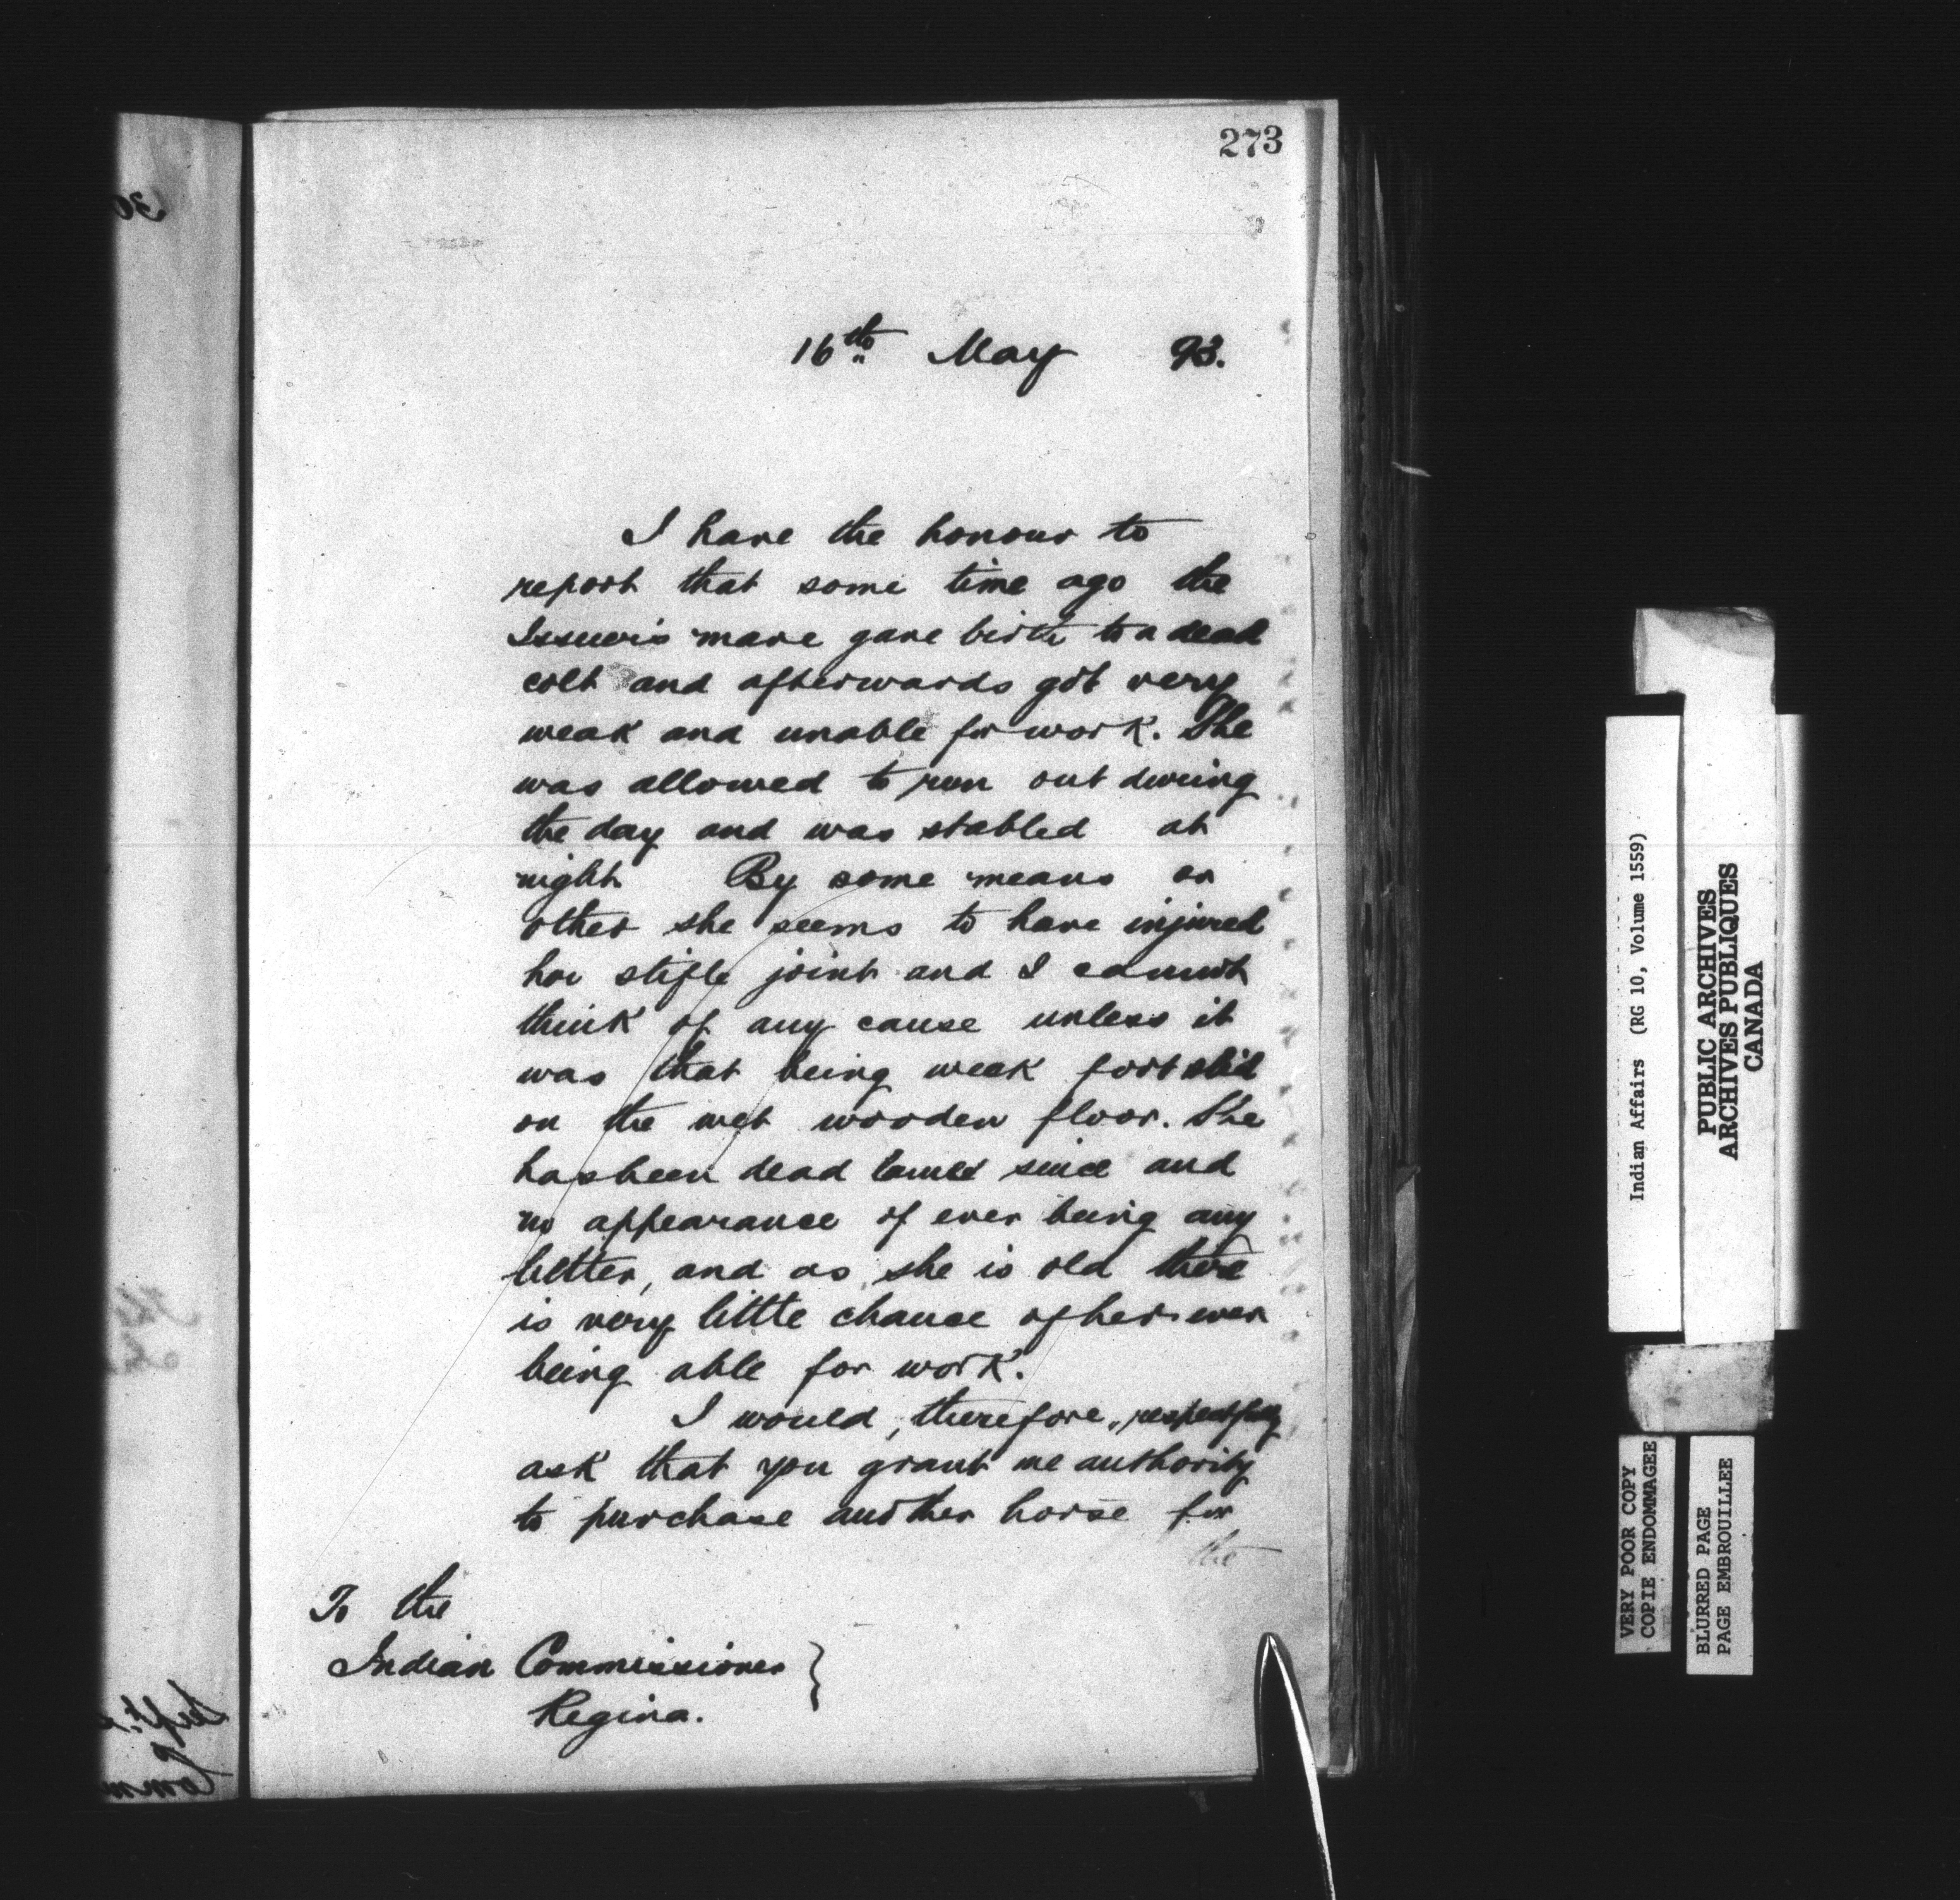 273
16th May 93.
I have the honour to
report that some time ago the
Issuer's mare gave birth to a dead
colt and afterwards got very
weak and unable for work. She
was allowed to run out during
the day and was stabled at
night By some means or
other she seems to have injured
her stifle joint and I cannot
think of any cause unless it
was that being weak foot slid
on the wet wooden floor. She
has been dead lame since and
no appearance of ever being any
better, and as she is old there
is very little chance of her ever
being able for work.
I would, therefore, respectfully
ask that you grant me authority
to purchase another horse for
the
To the
Indian Commissioner }
Regina.
Indian Affairs (RG 10, Volume 1559)
PUBLIC ARCHIVES
ARCHIVES PUBLIQUES
CANADA
VERY POOR COPY
COPIE ENDOMMAGEE
BLURRED PAGE
PAGE EMBROUILLEE